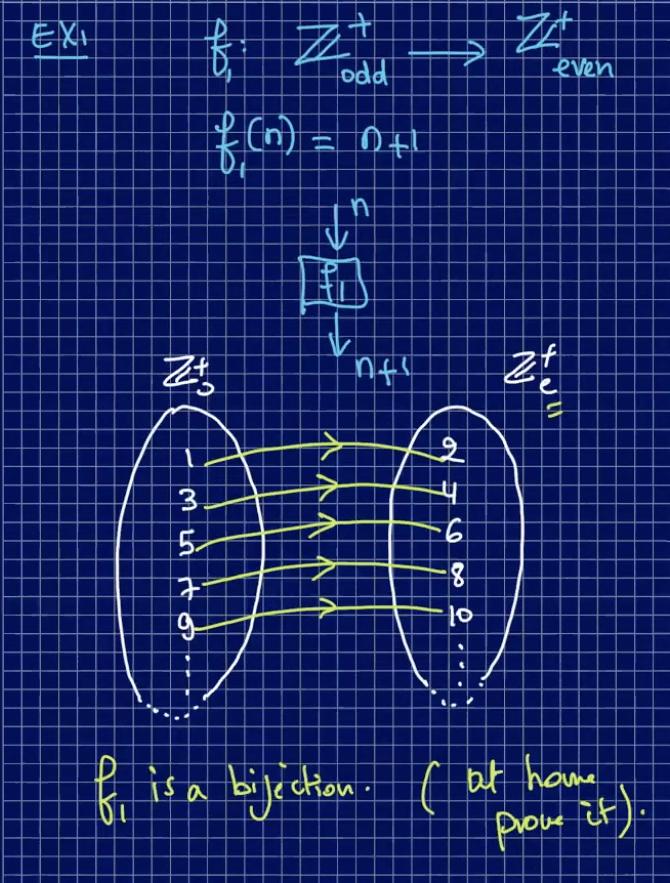 EX1 f₁: ℤ⁺odd ⟶ ℤ⁺even
f₁(n) = n+1
n
f₁
n+1
ℤ⁺o ℤ⁺e
1 2
3 4
5 6
7 8
9 10
f₁ is a bijection. (at home
prove it).